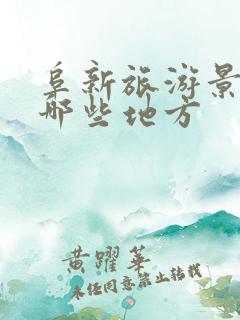 阜新旅游景
哪些地方
黄躍華
未经同意禁止转载